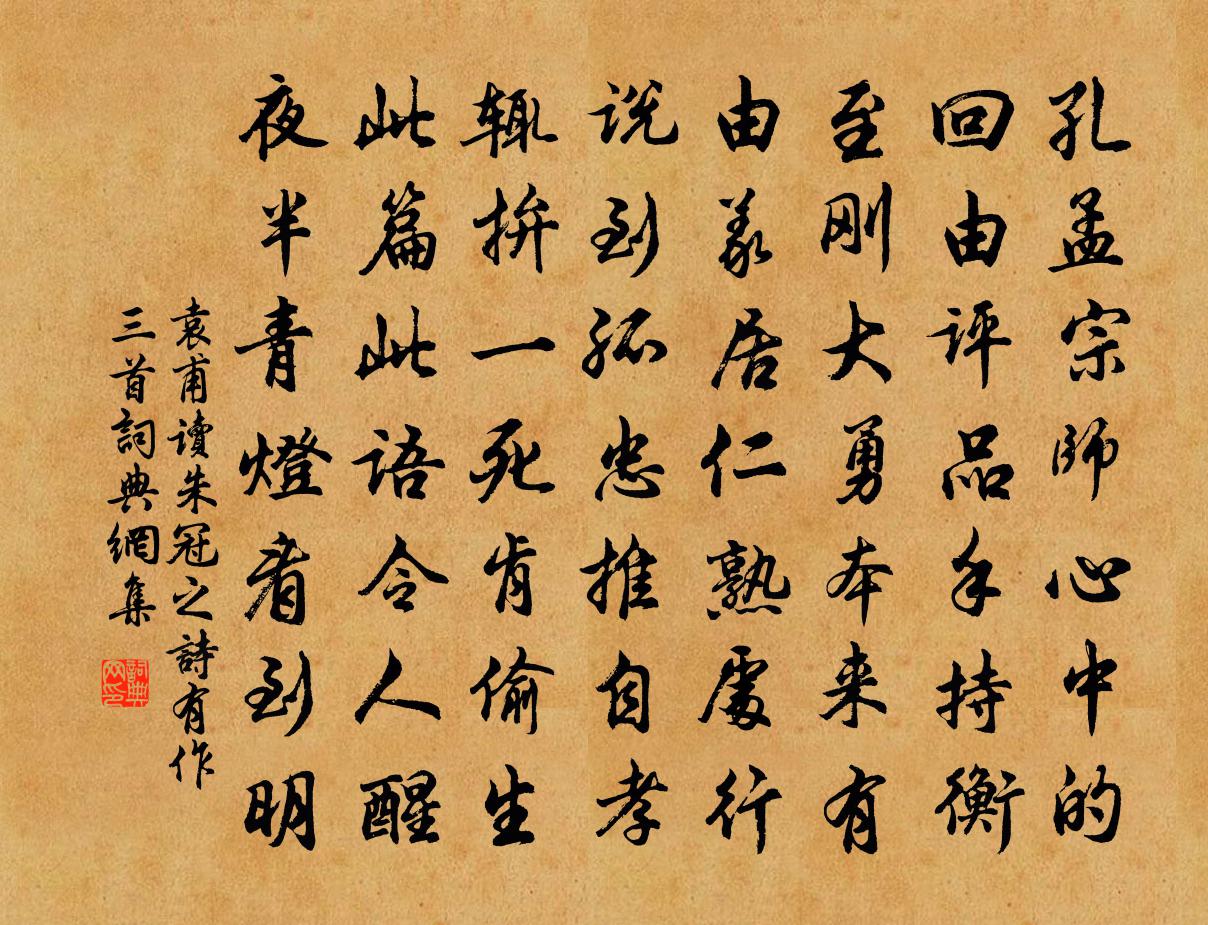 孔孟宗師心中的
回由评品手持衡
至刚大勇本来有
由義居仁熟處行
说到孤忠推自孝
輒拚一死肯偷生
此篇此语令人醒
夜半青燈看到明
袁甫讀朱冠之詩有作
三首詞典網集
詞典网印